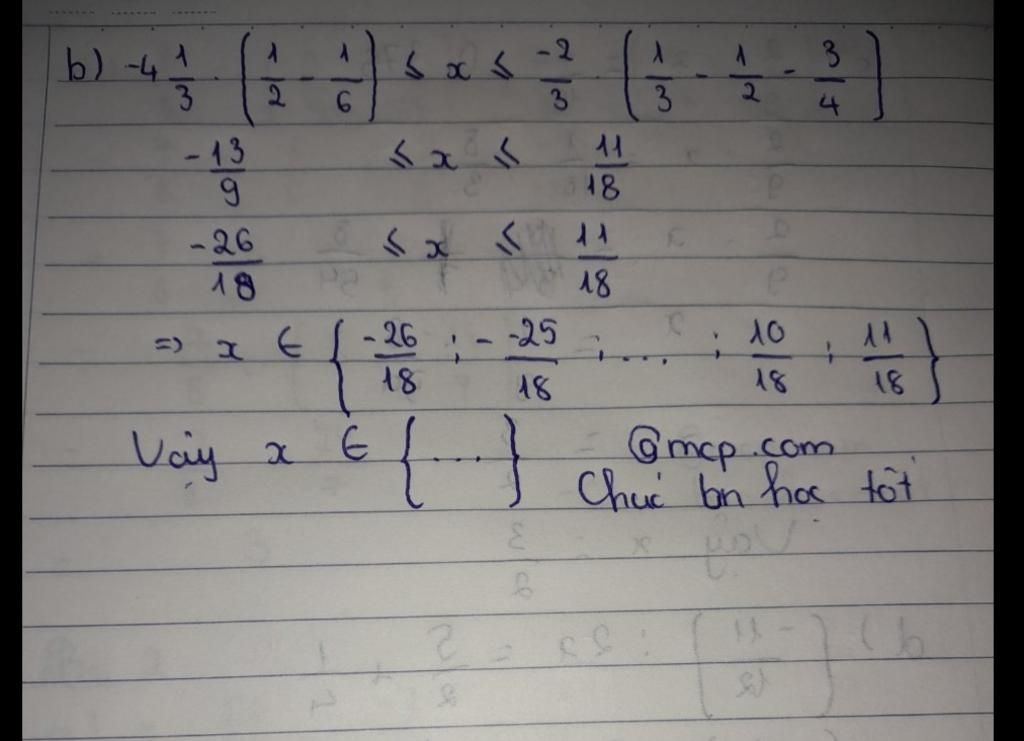 b) -4 1/3 · (1/2 - 1/6) ≤ x ≤ -2/3 · (1/3 - 1/2 - 3/4)
-13/9 ≤ x ≤ 11/18
-26/18 ≤ x ≤ 11/18
=> x ∈ {-26/18 ; - -25/18 ; ... ; 10/18 ; 11/18}
Vậy x ∈ {...} @mcp.com
Chúc bn học tốt